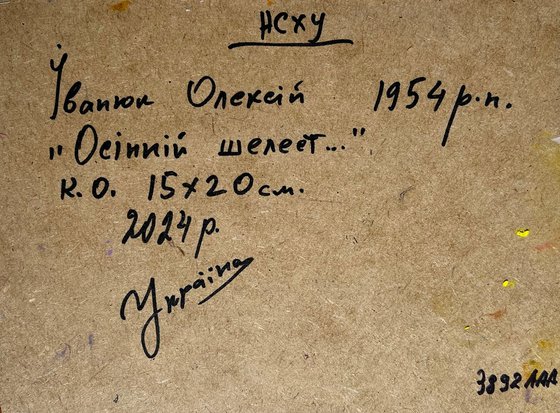 НСХУ
Іванюк Олексій 1954 р.н.
"Осінній шелест..."
к.о. 15х20 см.
2024 р.
Україна
3892 ЛАА